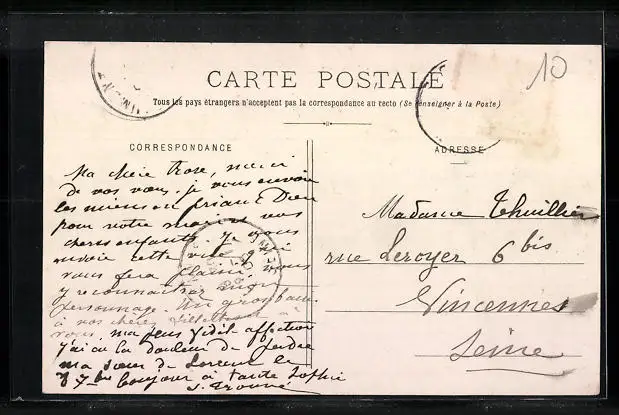 10
CARTE POSTALE
Tous les pays étrangers n'acceptent pas la correspondance au recto (Se renseigner à la Poste)
CORRESPONDANCE
Ma chère Rose, merci
de vos vœux, je vous envoie
les miens en priant Dieu
pour votre mari et vos
chers enfants. Je vous
envoie cette vue qui
vous fera plaisir, vous
y reconnaîtrez
personnage. Un gros baiser
à vos chères fillettes et à
vous, ma plus vive affection
j'ai eu la douleur de perdre
ma sœur de le
7bre bonjour à tante Sophie
ADRESSE
Madame Thuillier
rue Leroyer 6 bis
Vincennes
Seine